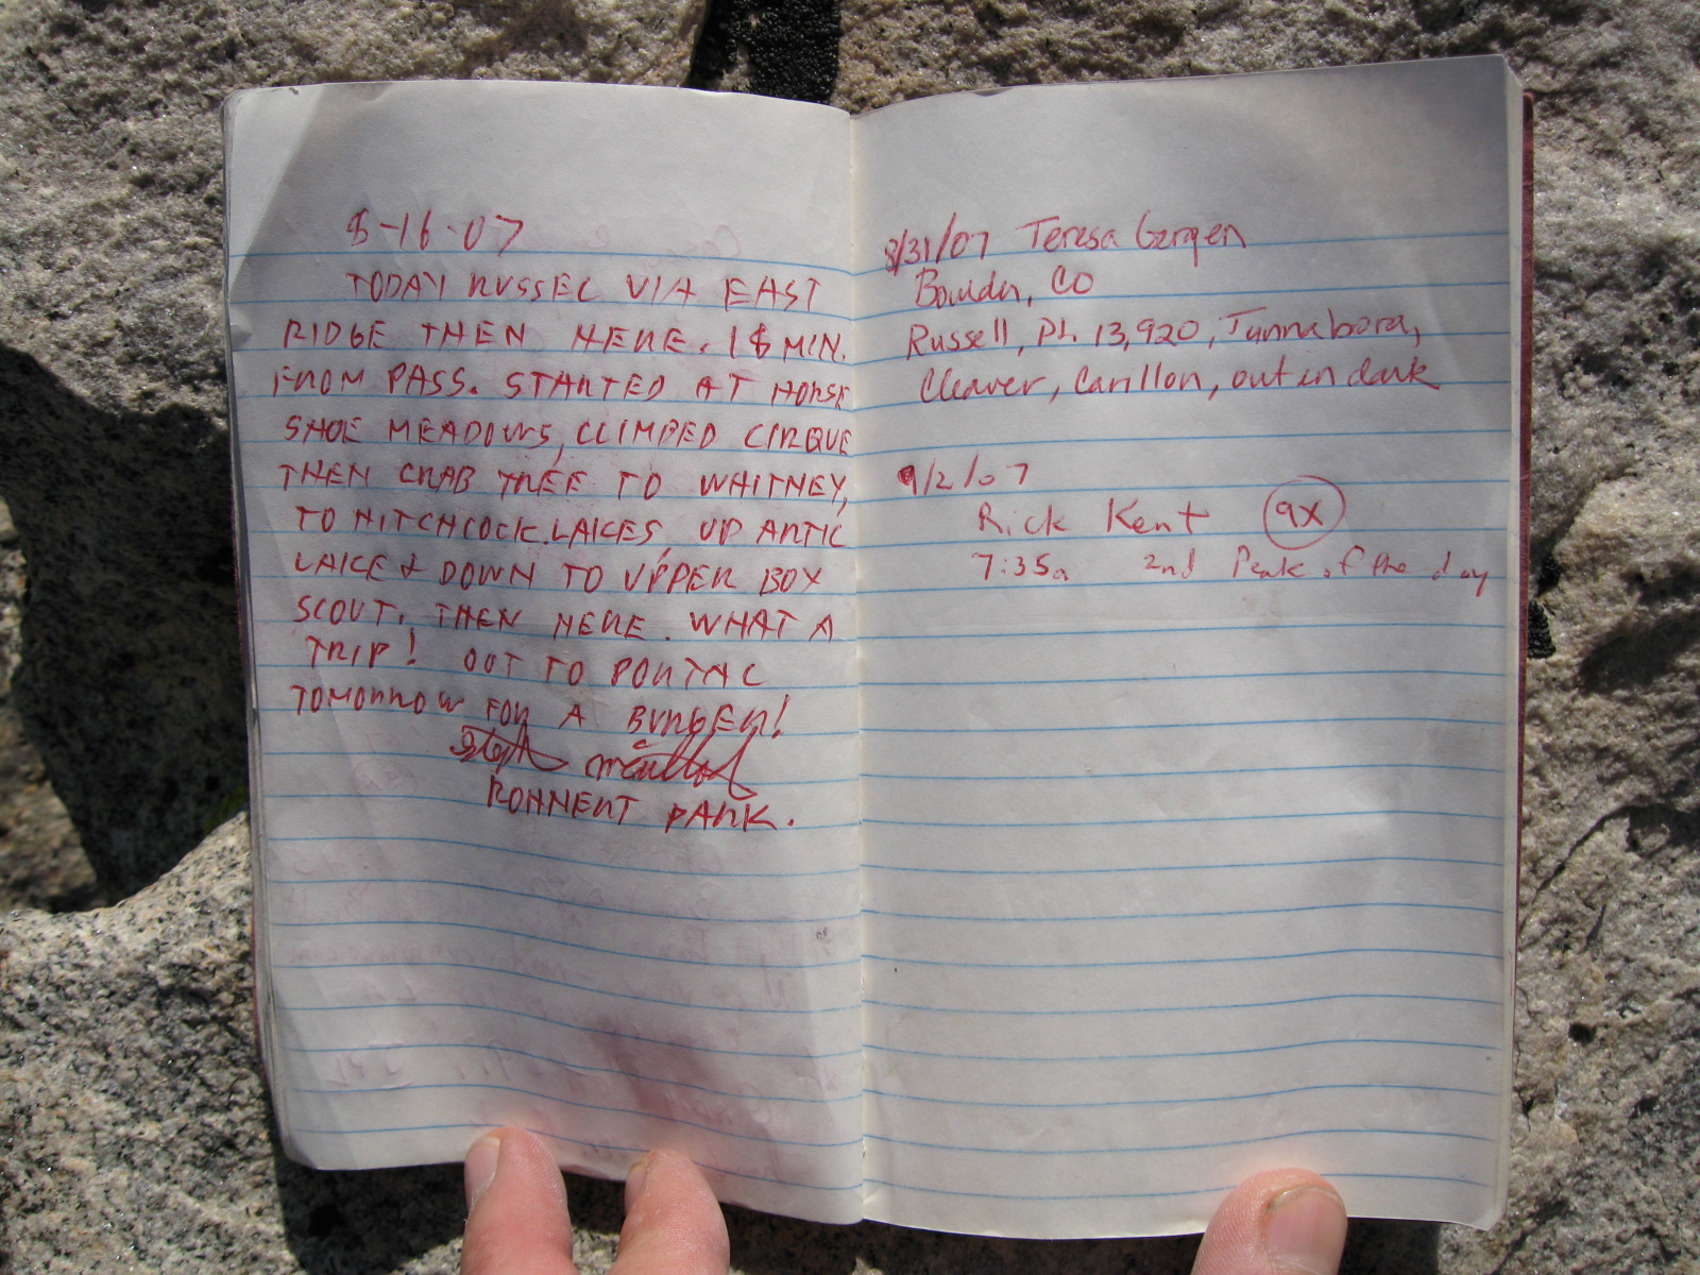 8-16-07
TODAY RUSSEL VIA EAST
RIDGE THEN HERE. 18 MIN.
FROM PASS. STARTED AT HORSE
SHOE MEADOWS, CLIMBED CIRQUE
THEN CRAB TREE TO WHITNEY,
TO HITCHCOCK LAKES, UP ARTIC
LAKE & DOWN TO UPPER BOY
SCOUT. THEN HERE. WHAT A
TRIP! OUT TO PORTAL
TOMORROW FOR A BURGER!
ROHNERT PARK.
8/31/07 Teresa Gergen
Boulder, CO
Russell, Pt. 13,920, Tunnabora,
Cleaver, Carillon, out in dark
9/2/07
Rick Kent 9X
7:35a 2nd Peak of the day